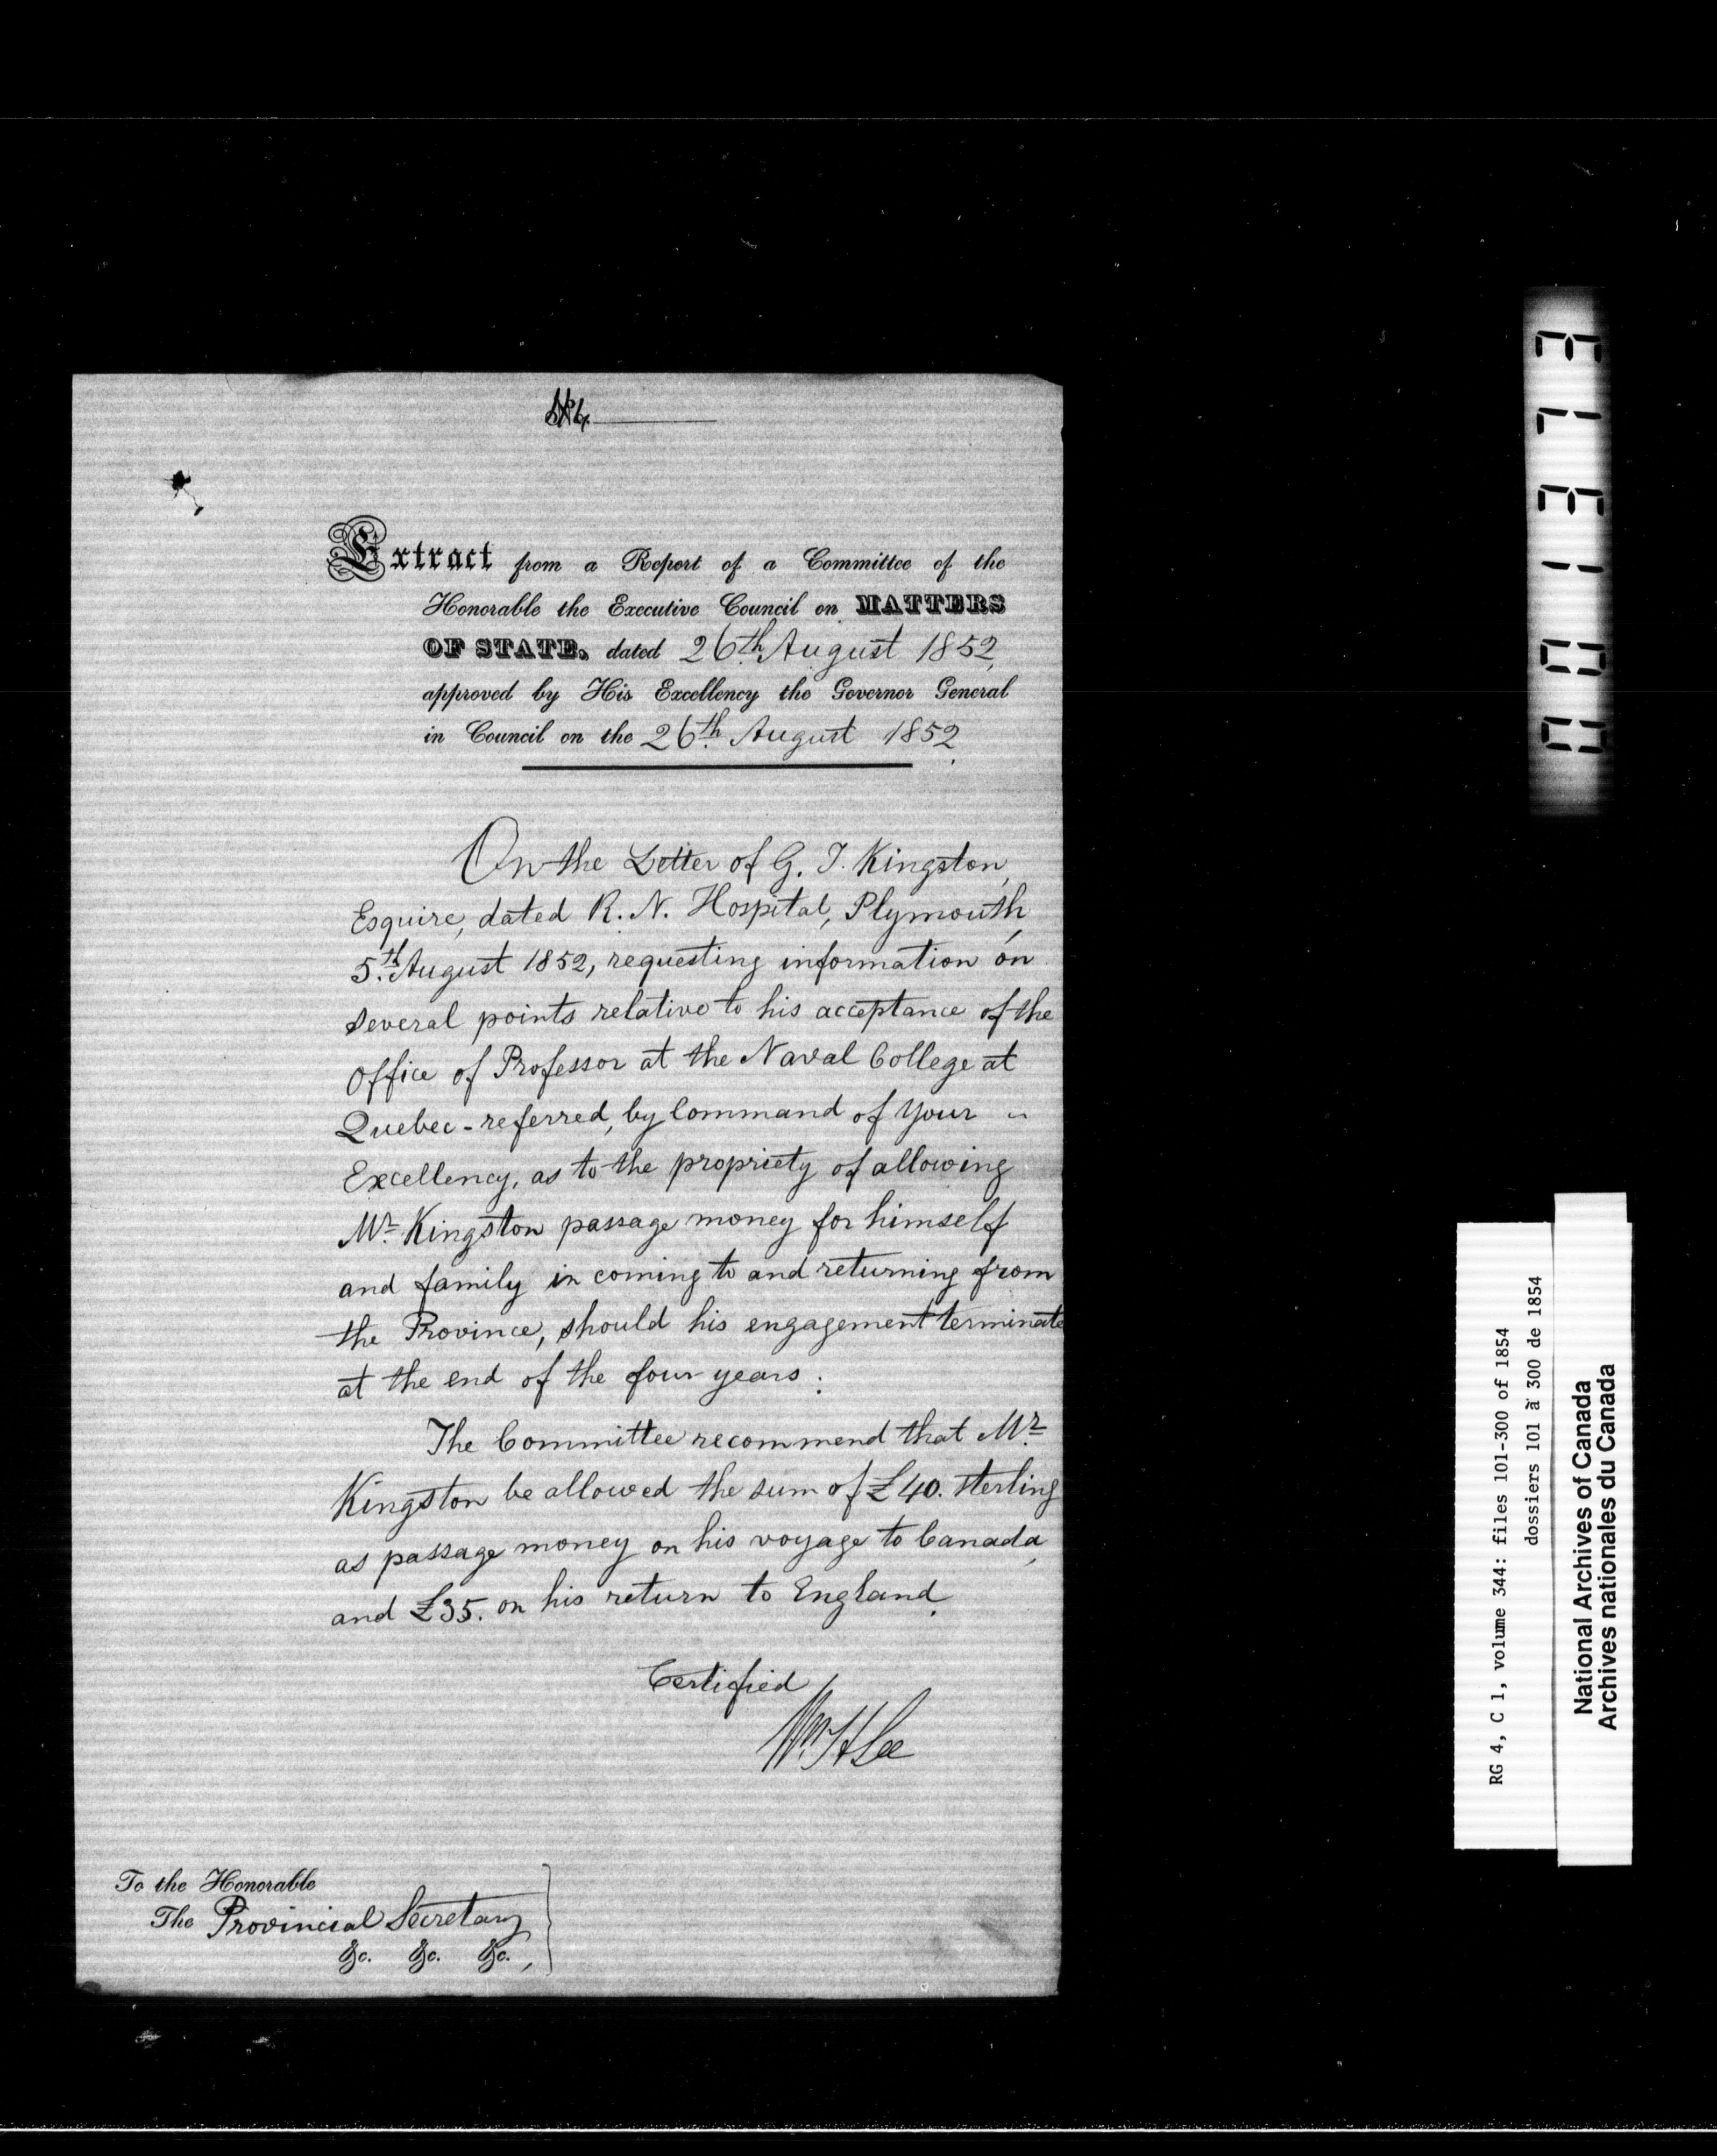 Extract from a Report of a Committee of the
Honorable the Executive Council on MATTERS
OF STATE, dated 26th August 1852,
approved by His Excellency the Governor General
in Council on the 26th August 1852.
On the Letter of G. T. Kingston,
Esquire, dated R. N. Hospital, Plymouth,
5th August 1852, requesting information on
several points relative to his acceptance of the
Office of Professor at the Naval College at
Quebec - referred, by Command of Your
Excellency, as to the propriety of allowing
Mr Kingston passage money for himself
and family in coming to and returning from
the Province, should his engagement terminate
at the end of the four years:
The Committee recommend that Mr
Kingston be allowed the sum of £40. sterling
as passage money on his voyage to Canada,
and £35. on his return to England.
Certified
Wm H Lee
To the Honorable
The Provincial Secretary
&c. &c. &c.,
RG 4, C 1, volume 344: files 101-300 of 1854
dossiers 101 à 300 de 1854
National Archives of Canada
Archives nationales du Canada